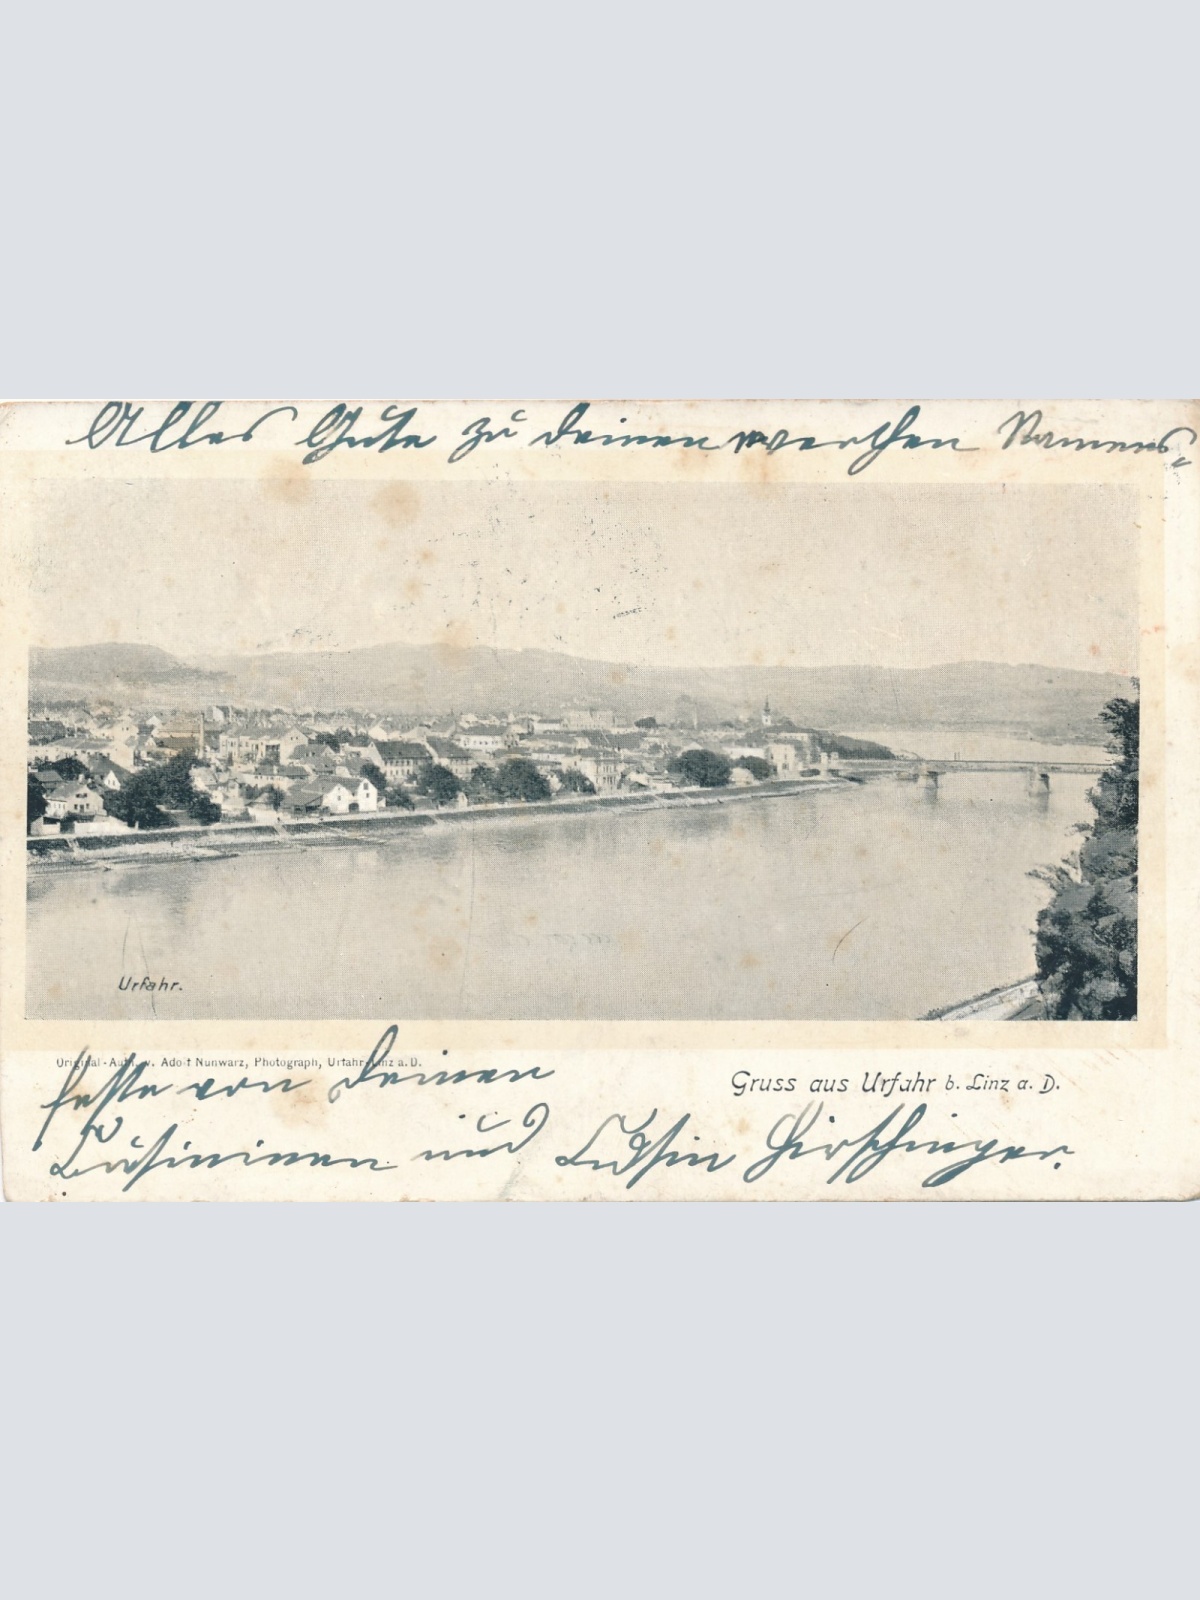 Alles Gute zu deinen werthen Namens-
Urfahr.
Original-Aufn. v. Adolf Nunwarz, Photograph, Urfahr-Linz a. D.
feste von Deinen
Gruss aus Urfahr b. Linz a. D.
und Hirschinger.